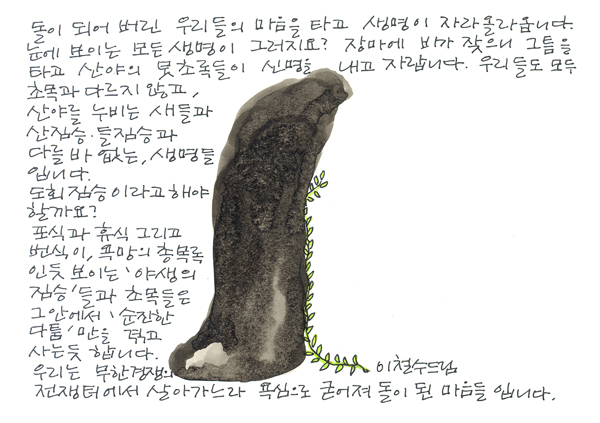 돌이 되어 버린 우리들의 마음을 타고 생명이 자라올라옵니다.
눈에 보이는 모든 생명이 그러지요? 장마에 비가 잦으니 그틈을
타고 산야의 뭇 초록들이 신명을 내고 자랍니다. 우리들도 모두
초목과 다르지 않고,
산야를 누비는 새들과
산짐승·들짐승과
다를 바 없는, 생명들
입니다.
도회 짐승이라고 해야
할까요?
포식과 휴식 그리고
번식이, 욕망의 총목록
인듯 보이는 '야생의
짐승'들과 초목들은
그안에서 '순진한
다툼'만을 겪고
사는듯 합니다.
우리는 무한경쟁의
전쟁터에서 살아가느라 욕심으로 굳어져 돌이 된 마음들 입니다.
이철수드림